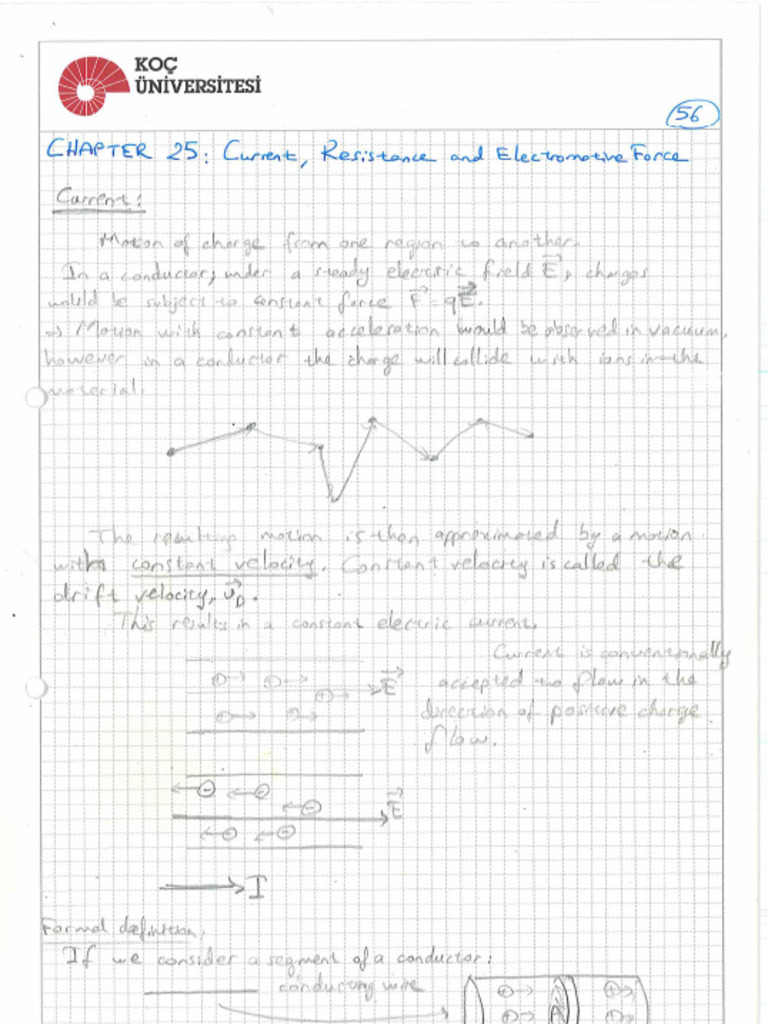 KOÇ
ÜNİVERSİTESİ
56
CHAPTER 25: Current, Resistance and Electromotive Force
Current:
Motion of charge from one region to another.
In a conductor, under a steady electric field E, charges
would be subject to constant force F = qE.
⇒ Motion with constant acceleration would be observed in vacuum,
however in a conductor the charge will collide with ions in the
material.
The resulting motion is then approximated by a motion
with constant velocity. Constant velocity is called the
drift velocity, v_D.
This results in a constant electric current.
Current is conventionally
accepted to flow in the
direction of positive charge
flow.
E
E
I
Formal definition:
If we consider a segment of a conductor:
conducting wire